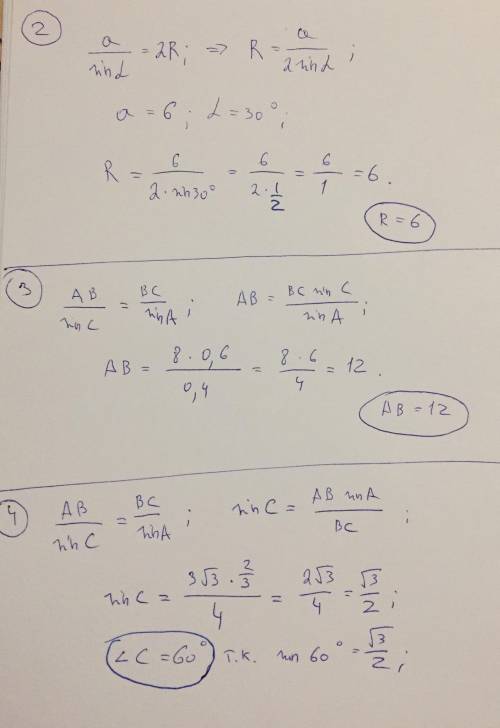 2
a/sin L = 2R; => R = a/2 sin L ;
a = 6 ; L = 30°;
R = 6/2·sin30° = 6/2·1/2 = 6/1 = 6.
R = 6
3
AB/sin C = BC/sin A ; AB = BC sin C/sin A ;
AB = 8·0,6/0,4 = 8·6/4 = 12.
AB = 12
4
AB/sin C = BC/sin A ; sin C = AB sin A/BC ;
sin C = 3√3·2/3/4 = 2√3/4 = √3/2 ;
∠C = 60° т.к. sin 60° = √3/2 ;